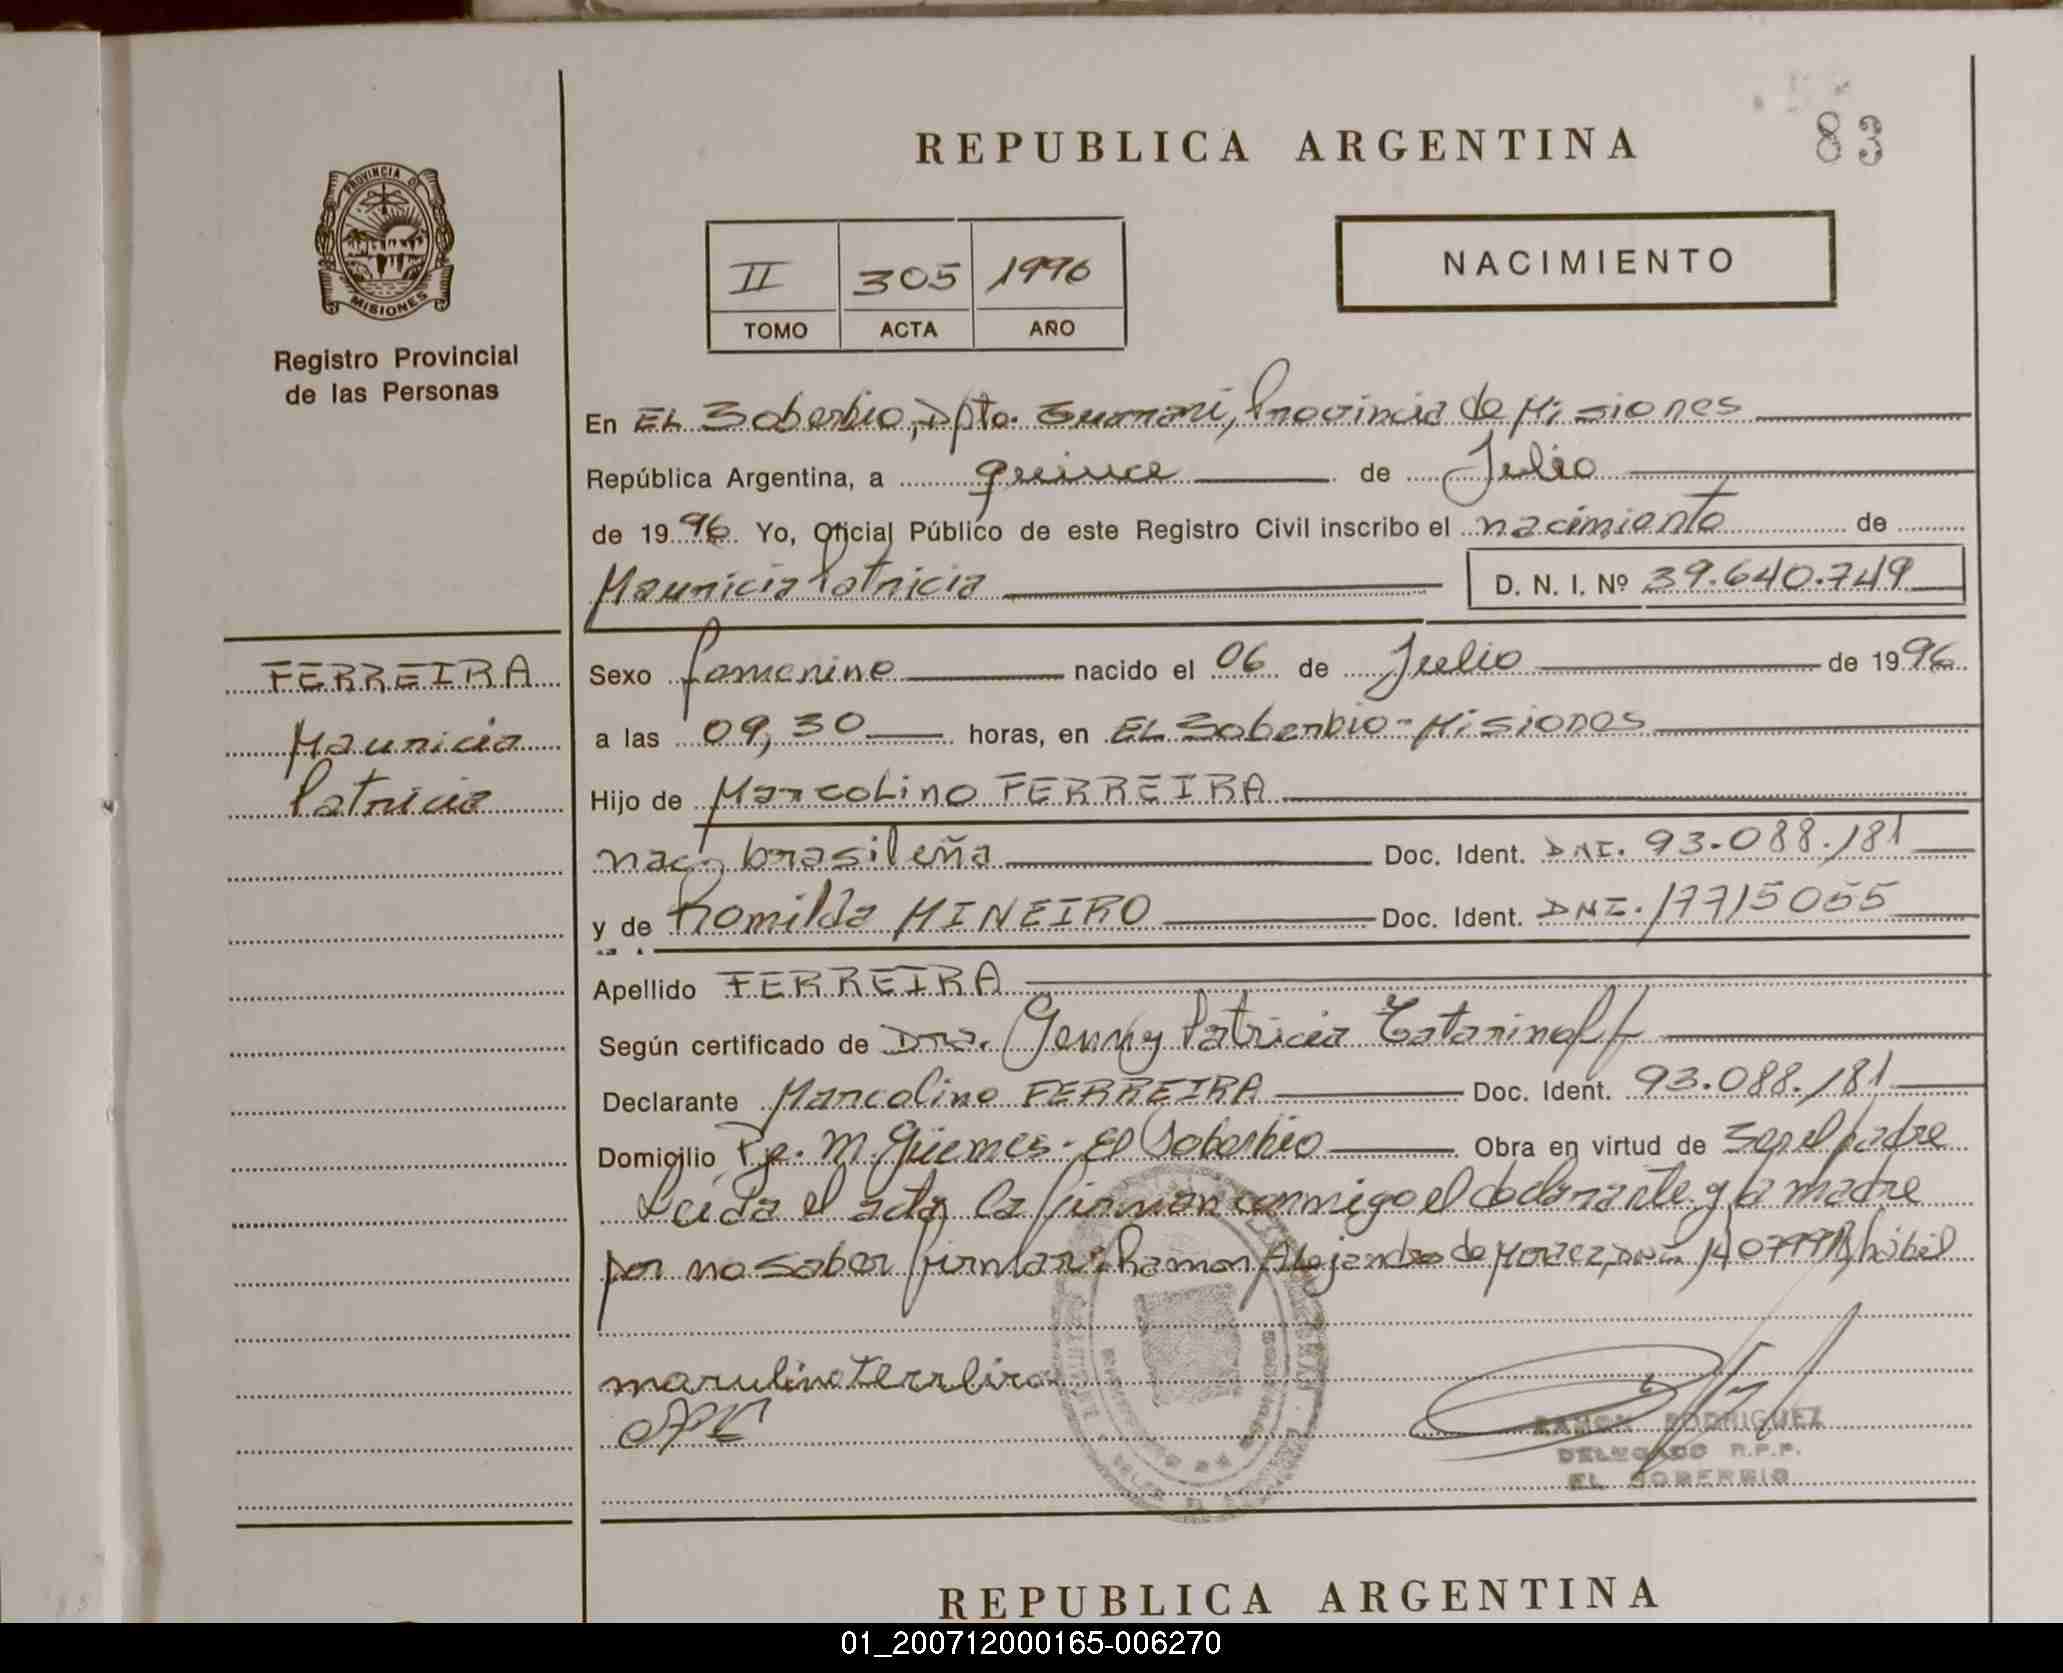 REPUBLICA ARGENTINA
83
PROVINCIA DE
MISIONES
Registro Provincial
de las Personas
II 305 1996
TOMO ACTA AÑO
NACIMIENTO
En EL Soberbio, Dpto. Guaraní, Provincia de Misiones
República Argentina, a quince de Julio
de 1996 Yo, Oficial Público de este Registro Civil inscribo el nacimiento de
Mauricia Patricia D. N. I. Nº 39.640.749
FERREIRA
Mauricia
Patricia
Sexo femenino nacido el 06 de Julio de 1996
a las 09,30 horas, en EL Soberbio - Misiones
Hijo de Marcolino FERREIRA
nac. brasileña Doc. Ident. DNI. 93.088.181
y de Romilda MINEIRO Doc. Ident. DNI. 17715055
Apellido FERREIRA
Según certificado de Dra. Genny Patricia Tatarinoff
Declarante Marcolino FERREIRA Doc. Ident. 93.088.181
Domicilio Pje. M. Güemes - El Soberbio Obra en virtud de ser el padre
Leída el acta, la firman conmigo el declarante y la madre
por no saber firmar: Ramon Alejandro de hábil
RAMON RODRIGUEZ
DELEGADO R.P.P.
EL SOBERBIO
REPUBLICA ARGENTINA
01_200712000165-006270